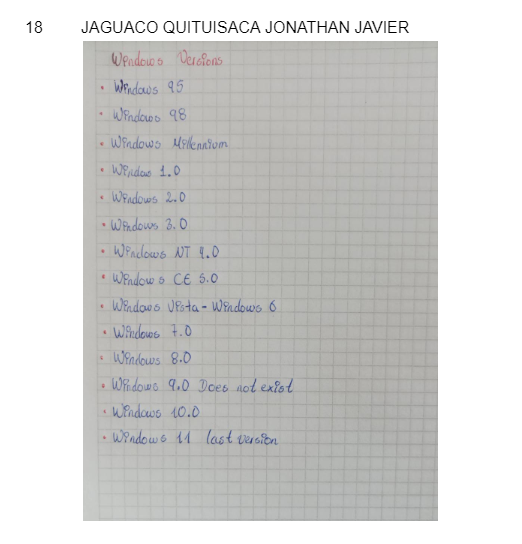 18 JAGUACO QUITUISACA JONATHAN JAVIER
Windows Versions
• Windows 95
• Windows 98
• Windows Millenniom
• Windows 1.0
• Windows 2.0
• Windows 3.0
• Windows NT 4.0
• Windows CE 5.0
• Windows Vista - Windows 6
• Windows 7.0
• Windows 8.0
• Windows 9.0 Does not exist
• Windows 10.0
• Windows 11 last version